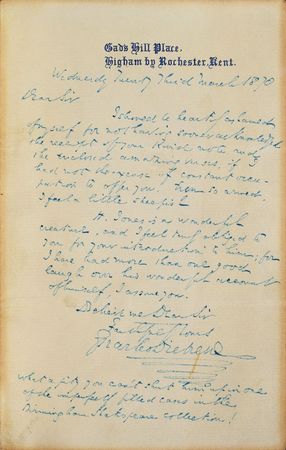 Gads Hill Place,
Higham by Rochester, Kent.
Wednesday Twenty Third March 1870
Dear Sir
I should be heartily ashamed
of myself for not having sooner acknowledged
the receipt of your kind note and
the enclosed amusing verses, if I
had not the excuse of constant occu-
pation to offer you. Even so armed,
I feel a little sheepish
H. Jones is a wonderful
creature, and I feel obliged to
you for your introduction to him; for
I have had more than one good
laugh over his wonderful account
of himself, I assure you.
Believe me Dear Sir
Faithfully Yours
Charles Dickens
What a pity you can't shut him up in one
of the imperfectly filled cases in the
Birmingham Shakspeare collection!